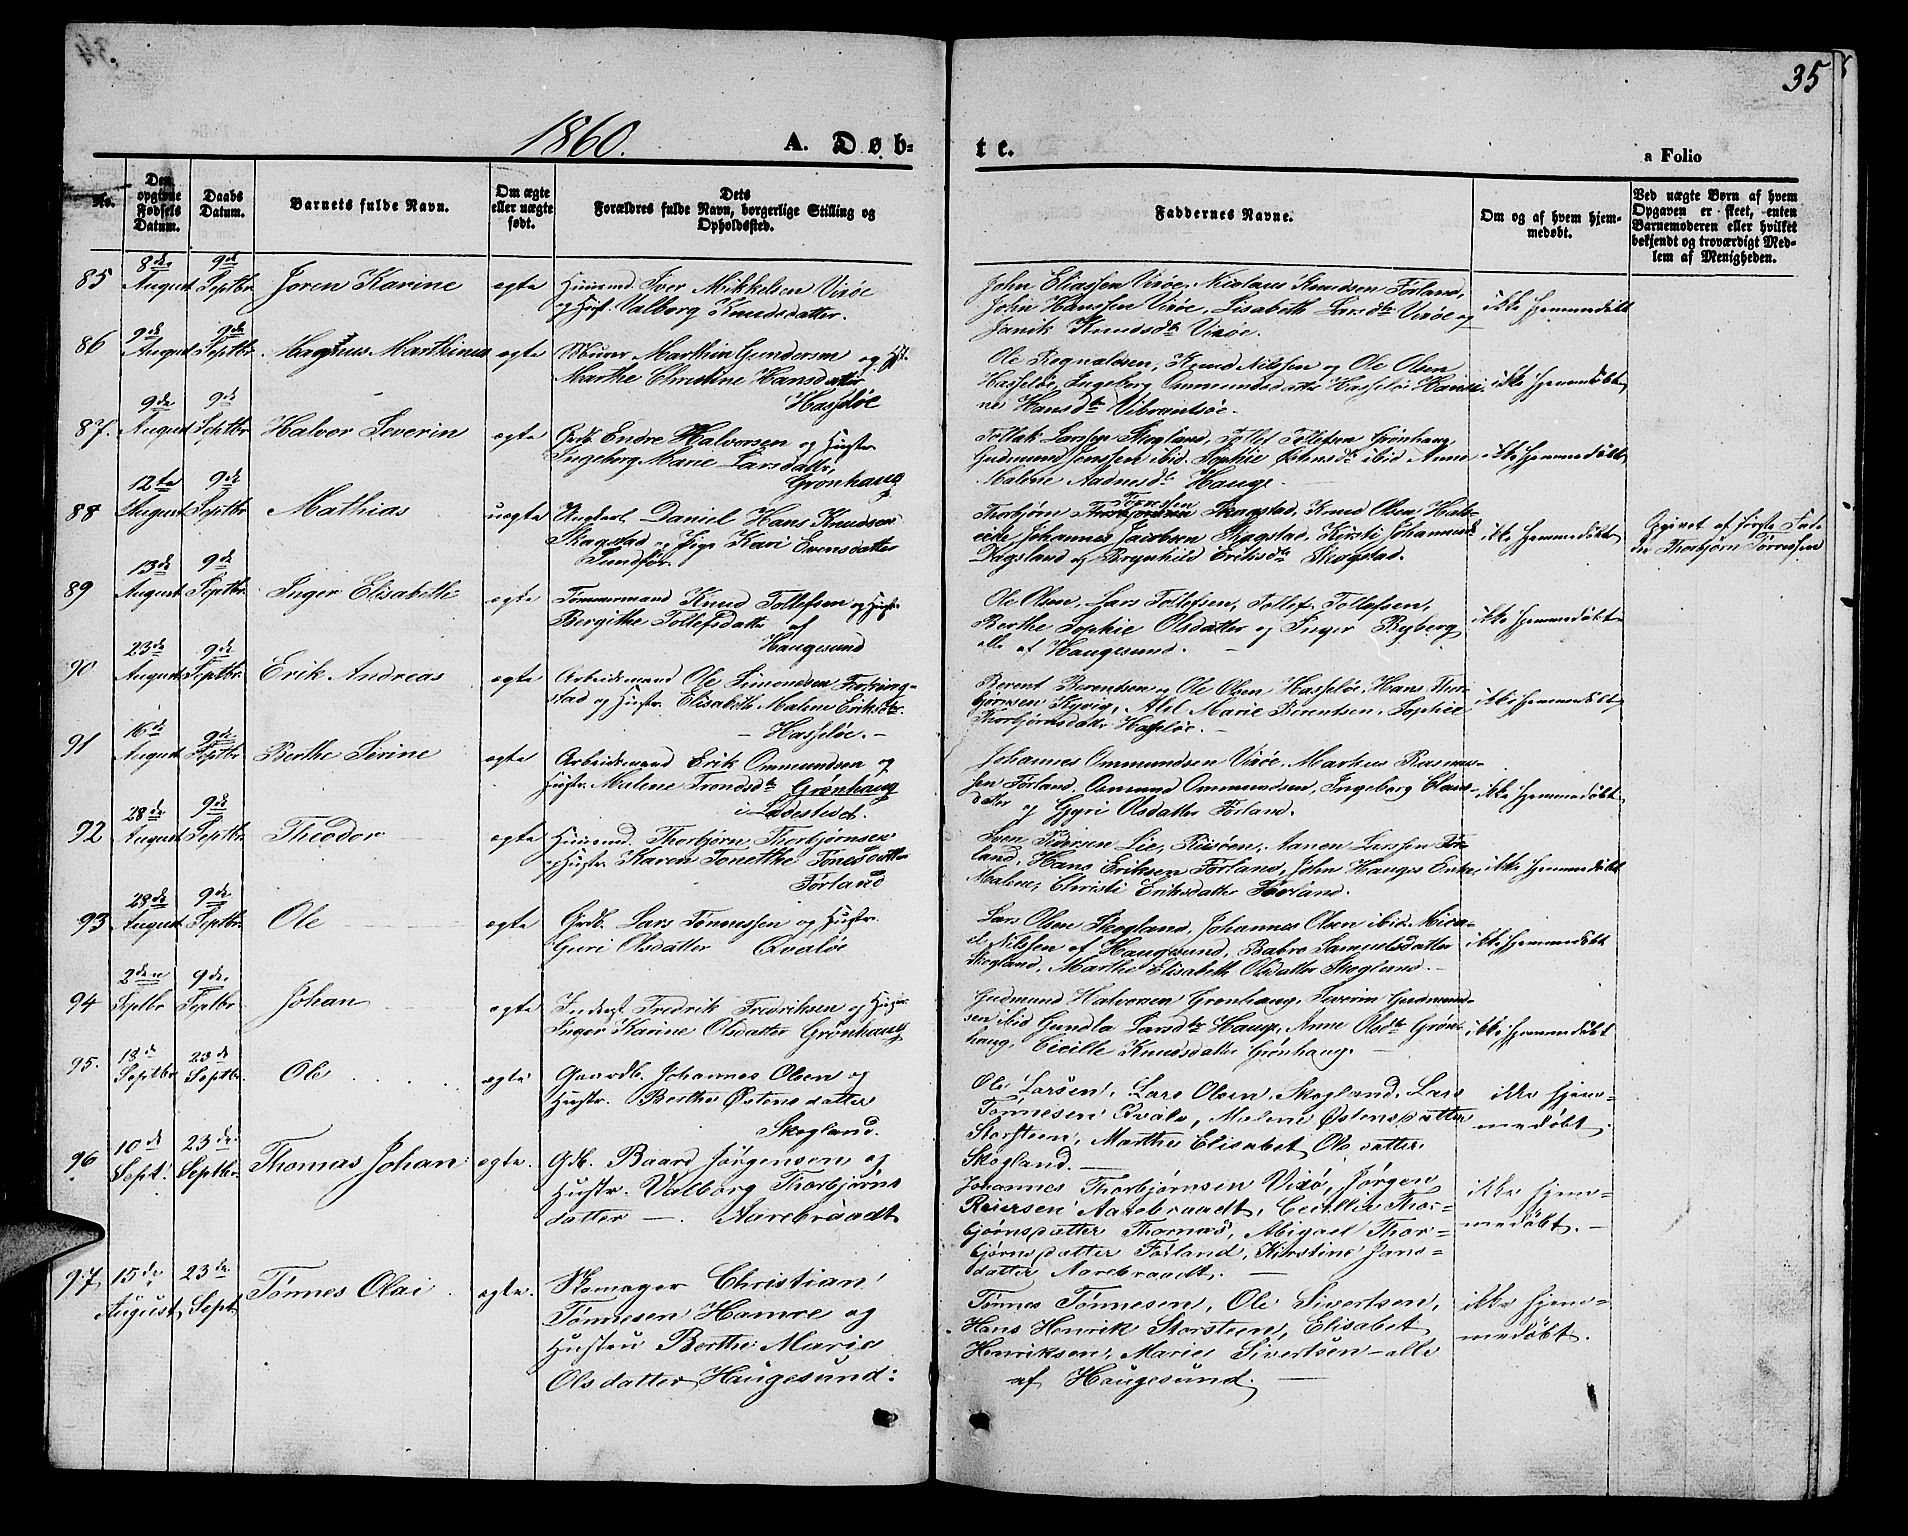 35
1860.
A. Døb-
te.
a Folio
No.
Den opgivne Fødsels Datum.
Daabs Datum.
Barnets fulde Navn.
Om ægte eller uægte født.
Dets Forældres fulde Navn, borgerlige Stilling og Opholdssted.
Faddernes Navne.
Om og af hvem hjemmedøbt.
Ved uægte Børn af hvem Opgaven er skeet, enten Barnemoderen eller hvilket bekjendt og troværdigt Medlem af Menigheden.
85 8de August 9de Septbr. Joren Karine ægte Huusmd. Iver Mikkelsen Vixøe
og Hust. Valborg Knudsdatter.
John Eliassen Vixøe, Nicolaus Knudsen Førland,
John Hanssen Vixøe, Lisabeth Larsdtr Vixøe og
Janik Knudsdtr Vixøe.
ikke hjemmedøbt
86 9de August 9de Septbr. Magnus Marthinus ægte Murer Marthin Gundersen og Hst.
Marthe Christine Hansdatter
Hasseløe
Ole Regnaldsen, Knud Nilsen og Ole Olsen
Hasseløe, Ingeborg Ommundsdatter Hasseløe Hansi-
ne Hansdtr Vibrantsøe.
ikke hjemmedøbt
87. 9de August 9de Septbr Halvor Severin ægte Grdb. Endre Halvorsen og Hustr.
Ingeborg Marie Larsdattr,
Grønhaug
Tollak Larssen Skogland, Tollef Tollefsen Grønhaug,
Gudmund Jonssen ibid. Sophie Østensdtr ibid Anne
Malene Aadnesdtr Hauge.
ikke hjemmedøbt
88 12te August 9de Septbr Mathias uægte Ungkarl Daniel Hans Knudsen
Skagstad og Pige Kari Evensdatter
Sundfør.
Thorbjørn Tørresen Skagstad, Knud Olsen
Johannes Jacobsen Skogstad, Kirsti Johannesdtr
Dagsland og Brynhild Eriksdtr Skogstad.
ikke hjemmedøbt
Opgivet af første Fad-
der Thorbjørn Tørressen
89 13de August 9de Septbr. Inger Elisabeth ægte Tømmermand Knud Tollefsen og Hustr.
Bergithe Tollefsdattr af
Haugesund
Ole Olsen, Lars Tollefsen, Tollef Tollefsen,
Berthe Sophie Olsdatter og Inger Ryberg
alle af Haugesund.
ikke hjemmedøbt
90 23de August 9de Septbr. Erik Andreas ægte Arbeidsmand Ole Simonsen
stad og Hustr. Elisabeth Malene Eriksdtr.
Hasseløe.
Berent Berentsen og Ole Olsen Hasseløe, Hans Thor-
bjørnsen Kyvig, Abel Marie Berentsen, Sophie
Thorbjørnsdatt. Hasseløe.
ikke hjemmedøbt
91 16de August 9de Septbr Berthe Serine ægte Arbeidsmand Erik Ommundsen og
Hustr. Malene Trondsdtr Grønhaug
i Ladestedet.
Johannes Ommundsen Vixøe, Markus Rasmus-
sen Førland, Osmund Ommundsen, Ingeborg Claus-
datter og Gyri Olsdatter Førland.
ikke hjemmedøbt
92 28de August 9de Septbr. Theodor ægte Huusmd. Thorbjørn Thorbjørnsen
og Hustr. Karen Tonethe Tønesdatter
Førland
Sven Lie, Aanen Larssen Før-
land, Hans Eriksen Førland, John Hauges Enke
Malene, Christi Eriksdatter Førland.
ikke hjemmedøbt
93 28de August 9de Septbr. Ole ægte Grdb. Lars Tønnessen og Hustr.
Guri Olsdatter Qvaløe
Lars Olsen Skogland, Johannes Olsen ibid. Mica-
el Nilssen af Haugesund, Babro Samuelsdatter
Skogland, Marthe Elisabeth Olsdatter Skogland.
ikke hjemmedøbt
94 2den Septbr 9de Septbr Johan ægte Inderst Fredrik Fredriksen og Hustr.
Inger Karine Olsdatter Grønhaug
Gudmund Halvorsen Grønhaug, Severin Gudmund-
sen ibid Gundla Larsdtr Hauge, Anne Olsdtr Grøn-
haug, Cicille Knudsdatter Grønhaug.
ikke hjemmedøbt
95. 18de Septbr 23de Septbr. Ole ægte Gaardb. Johannes Olsen og
Hustr. Berthe Østensdatter
Skogland.
Ole Larsen, Lars Olsen, Skogland, Lars
Tønnesen Kvalø, Malene Østensdatter
Storsteen, Marthe Elisabet Olsdatter
Skogland.
ikke hjem-
medøbt.
96 10de Sept. 23de Septbr. Thomas Johan ægte. Gdb. Baard Jørgensen og
Hustr. Valborg Thorbjørns
datter — Aarebraadt
Johannes Thorbjørnsen Vixø, Jørgen
Reiersen Aarebraadt, Cecillie Thor-
bjørnsdatter Thornæs, Abigael Thor-
bjørnsdatter Førland, Kirstine Jans-
datter Aarebraadt.
ikke hjem-
medøbt.
97. 15de August 23de Sept. Tønnes Olai ægte. Skomager Christian
Tønnesen Hamre og
Hustru Berthe Marie
Olsdatter Haugesund.
Tønnes Tønnesen, Ole Sivertsen,
Hans Henrik Storsteen, Elisabet
Henriksen, Marie Sivertsen - alle
af Haugesund.
ikke hjem-
medøbt.